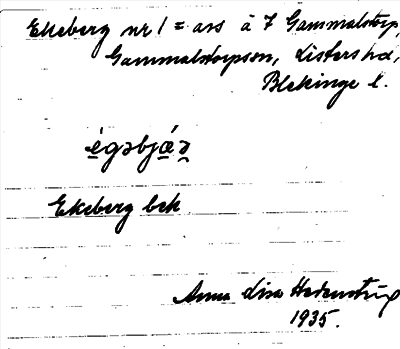 Ekeberg nr 1 = avs å 7 Gammalstorp,
Gammalstorpson, Listers hd,
Blekinge l.
égəbjǽə̯
Ekeberg bek
Anna Lisa Hedenström
1935.